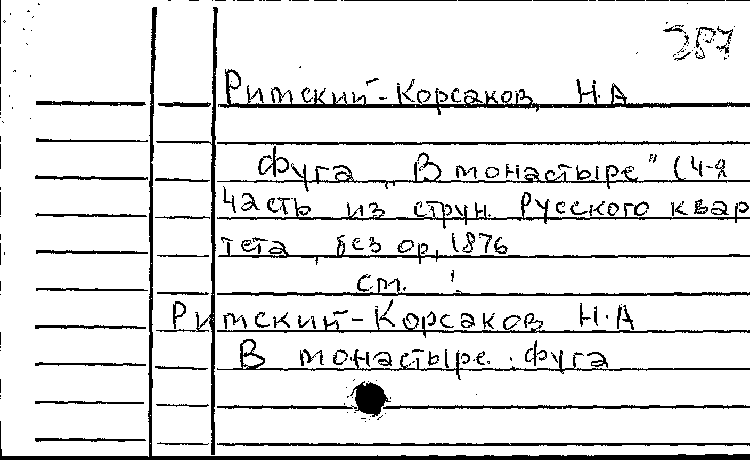 287
Римский-Корсаков, Н.А
Фуга „В монастыре" (4-я
часть из струн. Русского квар
тета, без ор, 1876
см. :
Римский-Корсаков Н.А
В монастыре. фуга